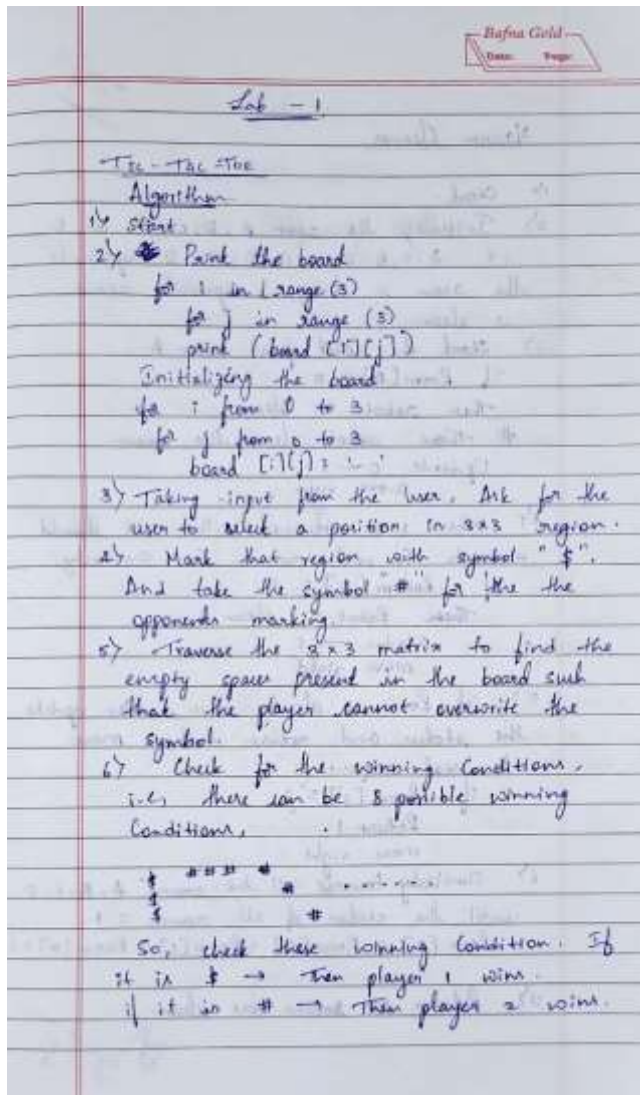 Bafna Gold
Date: Page:
Lab - 1
Tic - Tac - Toe
Algorithm
1> Start
2> Print the board
for i in range (3)
for j in range (3)
print (board [i][j])
Initializing the board
for i from 0 to 3
for j from 0 to 3
board [i][j] = '-'
3> Taking input from the user. Ask for the
user to select a position in 3x3 region.
4> Mark that region with symbol "$".
And take the symbol "#" for the the
opponents marking.
5> Traverse the 3x3 matrix to find the
empty spaces present in the board such
that the player cannot overwrite the
symbol.
6> Check for the winning Conditions.
i.e, there can be 8 possible winning
Conditions,
$ # # # #
$ # .......
$ #
So, check these winning Condition. If
it is $ → Then player 1 wins.
if it is # → Then player 2 wins.